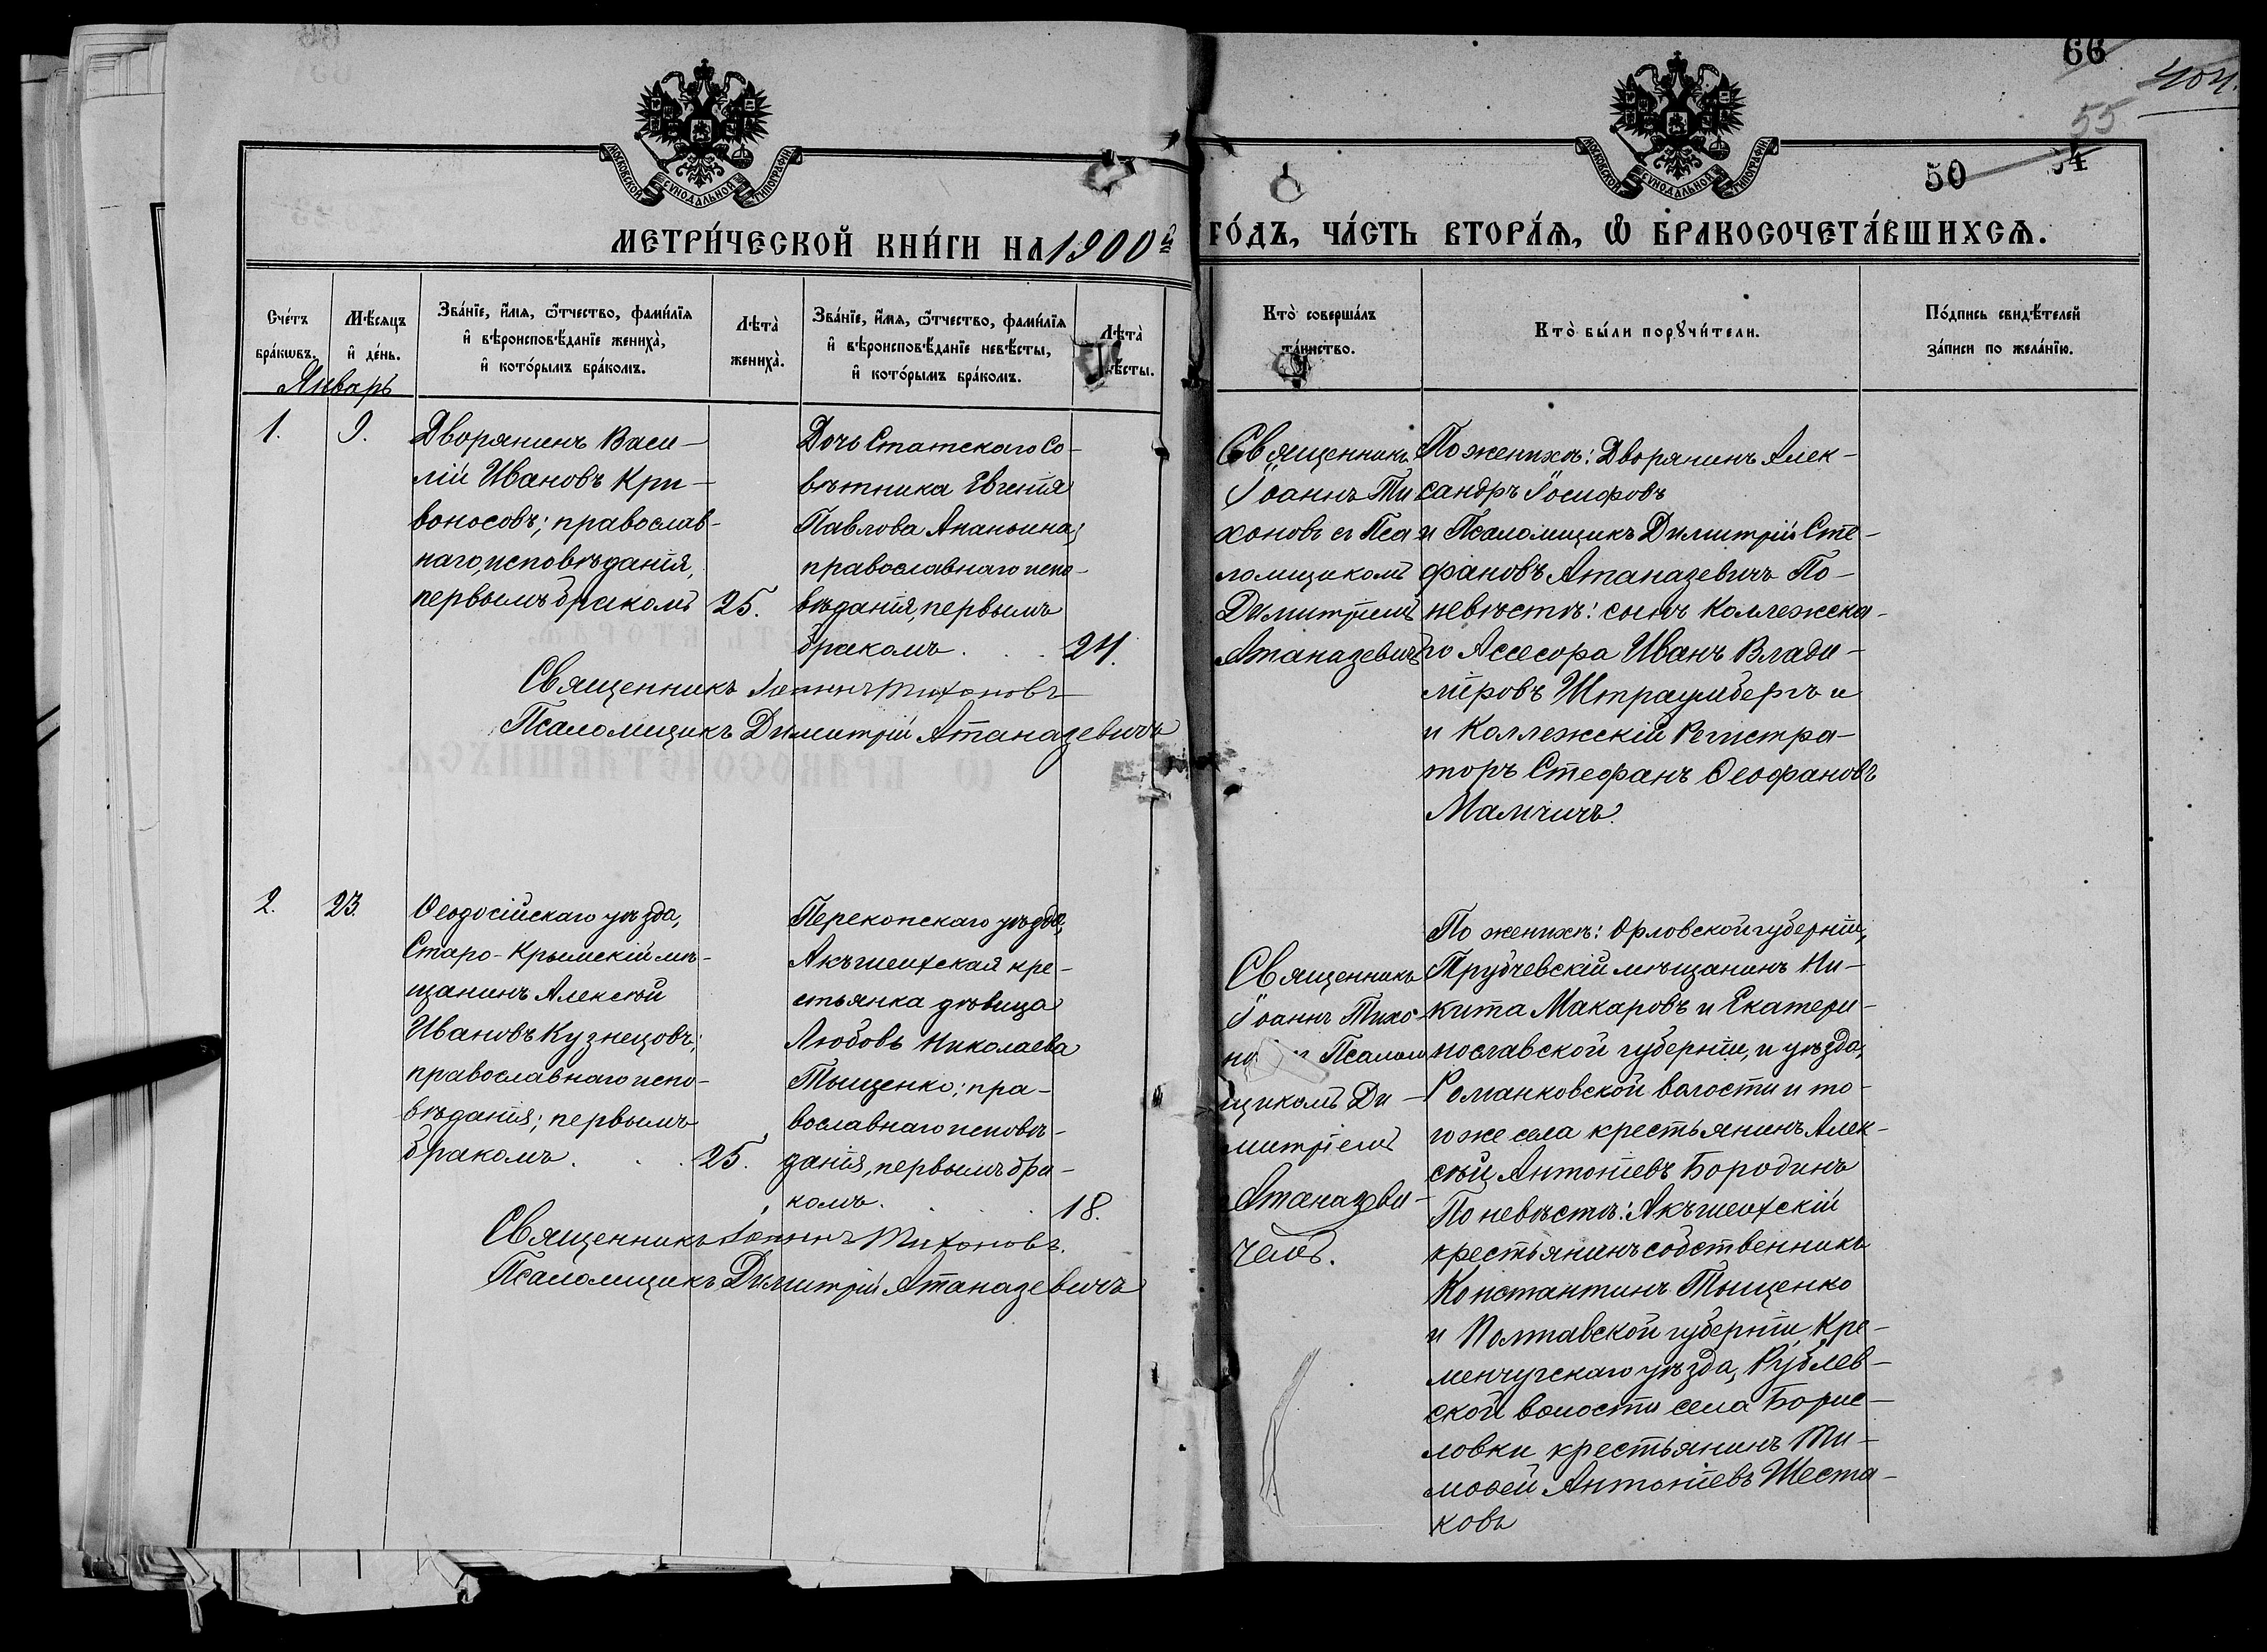 66
404.
55
50 54
МОСКОВСКОЙ СѴНОДАЛЬНОЙ ТИПОГРАФІИ
МОСКОВСКОЙ СѴНОДАЛЬНОЙ ТИПОГРАФІИ
МЕТРИ́ЧЕСКОЙ КНИ́ГИ НА 1900й ГО́ДЪ, ЧА́СТЬ ВТОРА́Ѧ, Ѡ БРАКОСОЧЕТА́ВШИХСѦ.
Сче́тъ
бра́кѡвъ.
Мѣ́сяцъ
и҆ де́нь.
Зва́нїе, и҆́мѧ, ѻ҆́тчество, фами́лїѧ
и҆ вѣроисповѣ́данїе жениха̀,
и҆ кото́рымъ бра́комъ.
Лѣта̀
жениха̀.
Зва́нїе, и҆́мѧ, ѻ҆́тчество, фами́лїѧ
и҆ вѣроисповѣ́данїе невѣ́сты,
и҆ кото́рымъ бра́комъ.
Лѣта̀
ѣ́сты.
Кто̀ соверша́лъ
та́инство.
Кто̀ бы́ли порꙋчи́тели.
По́дпись свидѣ́телей
за́писи по жела́нїю.
Январь
1.
9.
Дворянинъ Васи-
лій Ивановъ Кри-
воносовъ; православ-
наго, исповѣданія,
первымъ бракомъ
25.
Дочь Статскаго Со-
вѣтника Евгенія
Павлова Ананьина;
православнаго испо-
вѣданія, первымъ
бракомъ. . .
24.
Священникъ Іоаннъ Тихоновъ
Псаломщикъ Димитрій Атаназевичъ
Священникъ
Іоаннъ Ти
хоновъ съ Пса
ломщикомъ
Димитріемъ
Атаназевичъ
По женихѣ: Дворянинъ Алек-
сандръ Іосифовъ
и Псаломщикъ Димитрій Сте-
фановъ Атаназевичъ По-
невѣстѣ: сынъ Коллежска-
го Ассесора Иванъ Влади-
міровъ Штраумбергъ и
и Коллежскій Регистра-
торъ Стефанъ Ѳеофановъ
Мамчичъ.
2.
23.
Ѳеодосійскаго уѣзда,
Старо-Крымскій мѣ-
щанинъ Алексѣй
Ивановъ Кузнецовъ;
православнаго испо-
вѣданія; первымъ
бракомъ. . .
25.
Перекопскаго уѣзда,
Акъшеихская кре-
стьянка дѣвица
Любовь Николаева
Тыщенко; пра-
вославнаго исповѣ-
данія, первымъ бра-
комъ. . .
18.
Священникъ Іоаннъ Тихоновъ.
Псаломщикъ Димитрій Атаназевичъ
Священникъ
Іоаннъ Тихо-
но Псалом
щикомъ Ди-
митріемъ
Атаназеви-
чемъ.
По женихѣ: Орловской губерніи,
Трубчевскій мѣщанинъ Ни-
кита Макаровъ и Екатери-
нославской губерніи, и уѣзда,
Романковской волости и то-
го же села крестьянинъ Алек-
сѣй Антоніевъ Бородинъ
По невѣстѣ: Акъшеихскій
крестьянинъ собственникъ
Константинъ Тыщенко
и Полтавской губерніи, Кре-
менчугскаго уѣзда, Рублев-
ской волости села Борис-
ловки крестьянинъ Ти-
моѳей Антоніевъ Шеста-
ковъ